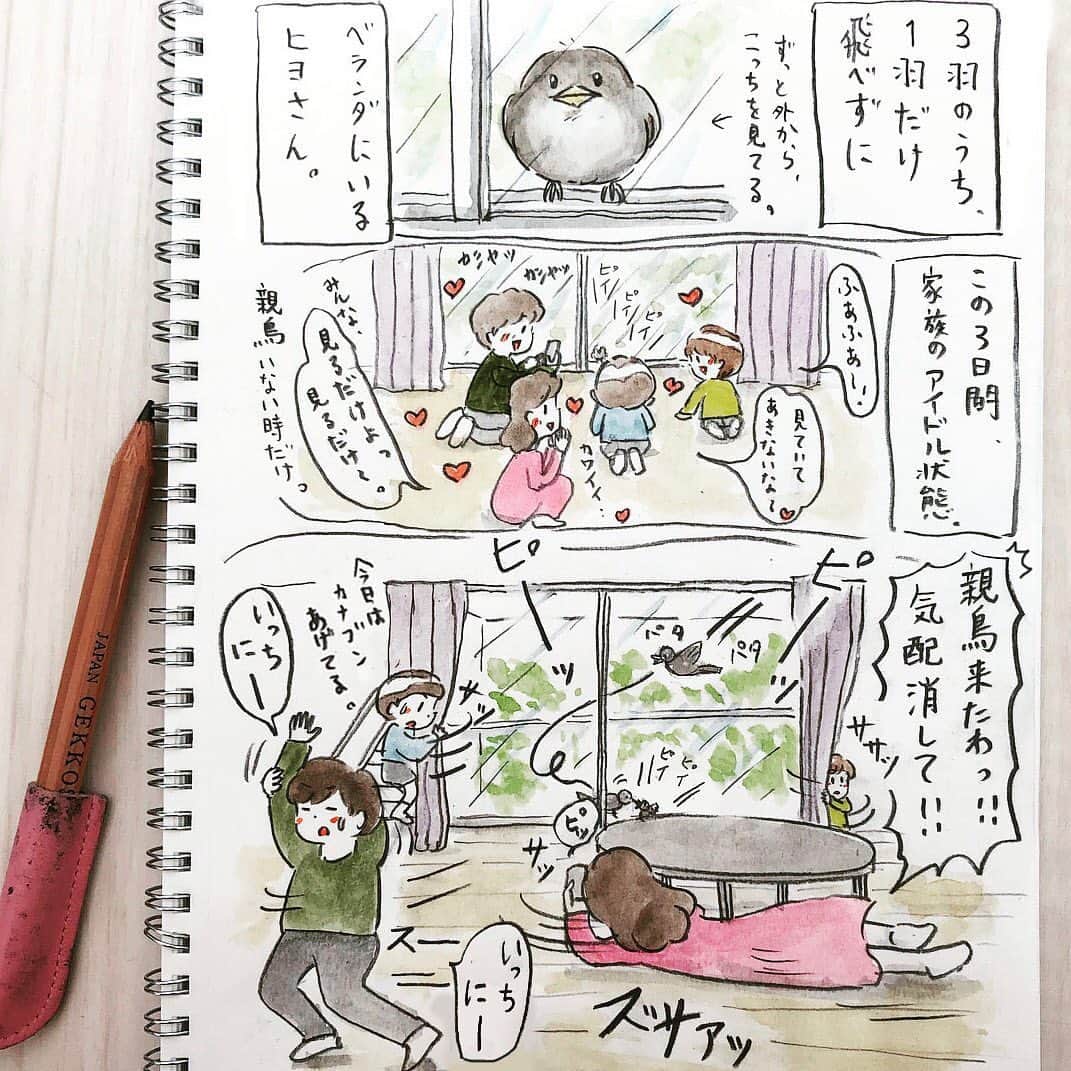 ３羽のうち、
１羽だけ
飛べずに
ずっと外から、
こっちを見てる。
ベランダにいる
ヒヨさん。
この３日間、
家族のアイドル状態。
ふあふあ〜!
見ていて
あきないな〜
カシャッ
カシャッ
ピィー
ピィ
ピィ
カワイイ…
みんな、
見るだけよっ
見るだけ〜。
親鳥いない時だけっ
親鳥来たわっ!!
気配消して!!
ピーッ
ピーッ
パタ
パタ
ササッ
サッ
今日は
カナブン
あげてる。
いっち
にー
ピィ
ピィ
ピッ
サッ
スー
いっち
にー
ズサアッ
JAPAN GEKKO